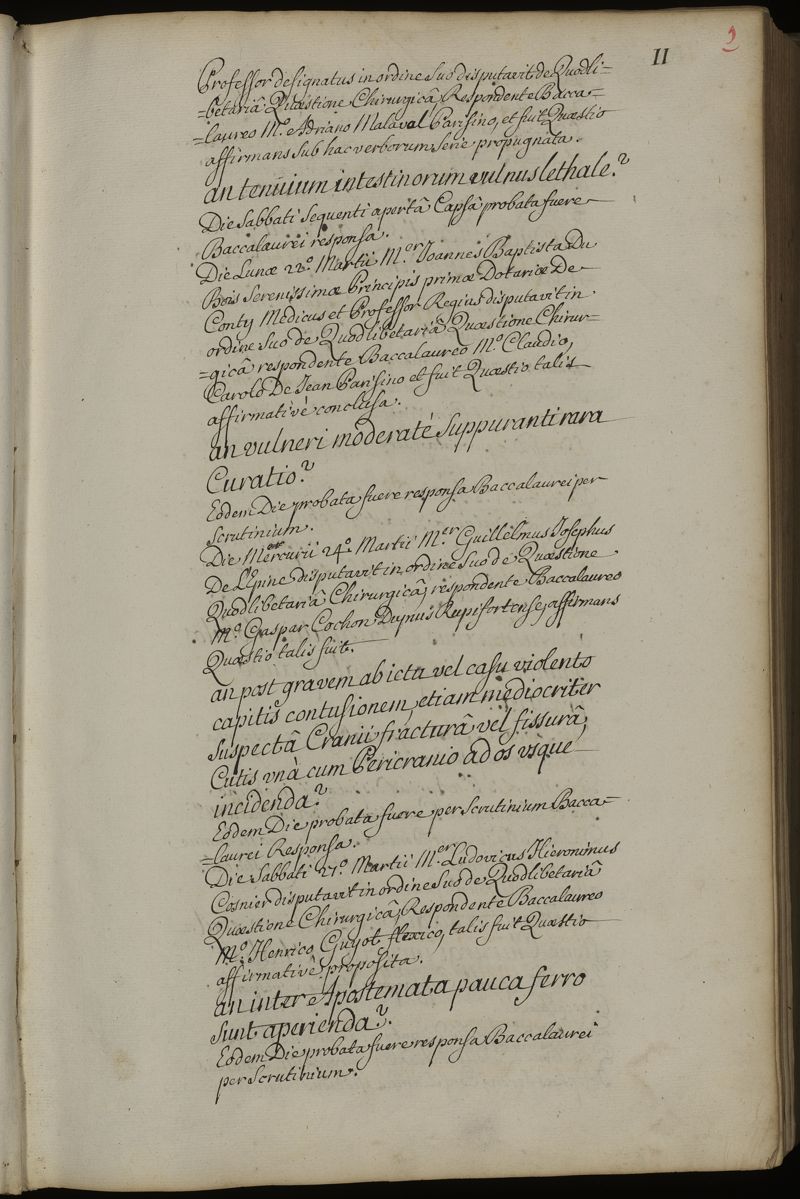 II
9
Professor designatus in ordine suo disputavit de Quodli=
=betariâ Quæstione Chirurgicâ, Respondente Bacca=
=laureo M.º Adriano Malaval Parisino, et fuit Quæstio
affirmans sub hac verborum serie propugnata.
an tenuium intestinorum vulnus lethale.?
Die Sabbati sequenti apertâ Capsâ probata fuere
Baccalaurei responsa.
Die Lunæ 22º. Martii M.er Joannes Baptista Du
Bois Serenissimæ Principis primæ Dotariæ De
Conty Medicus et Professor Regius disputavit in
ordine suo de Quodlibetariâ Quæstione Chirur=
=gicâ respondente Baccalaureo M.º Claudio,
Carolo De Jean Parisino et fuit Quæstio talis
affirmativè conclusa.
an vulneri moderaté suppuranti rara
Curatio?
Eodem Die probata fuere responsa Baccalaurei per
scrutinium.
Die Mercurii 24º. Martii M.er Guillelmus Josephus
De L'Epine disputavit in ordine suo de Quæstione
Quodlibetariâ Chirurgicâ, respondente Baccalaureo
M.º Gaspar Cochon Dupuis Rupifortense, affirmans
Quæstio talis fuit.
an post gravem ab ictu vel casu violento
capitis contusionem, etiam mediocriter
suspectâ Cranii fracturâ vel fissurâ,
Cutis unà cum Pericranio ad os usque
incidenda?
Eodem Die probata fuere per scrutinium Bacca=
=laurei Responsa.
Die Sabbati 27º. Martii M.er Ludovicus Hieronimus
Cosnier disputavit in ordine suo de Quodlibetariâ
Quæstione Chirurgicâ, Respondente Baccalaureo
M.º Henrico Guyot flexico, talis fuit Quæstio
affirmativè proposita.
an inter Apostemata pauca ferro
sunt aperienda?.
Eodem Die probata fuere responsa Baccalaurei
per scrutinium.